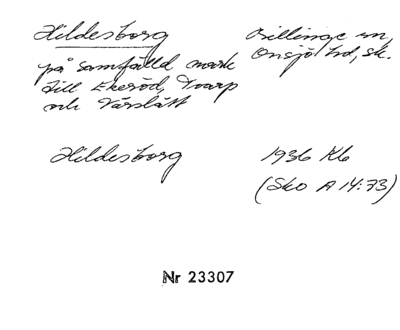 Hildesborg
Billinge sn,
Onsjö hd, Sk.
på samfälld mark
till Ekeröd, Toarp
och Vårslätt
Hildesborg
1936 Kb
(Sko A 14:73)
Nr 23307